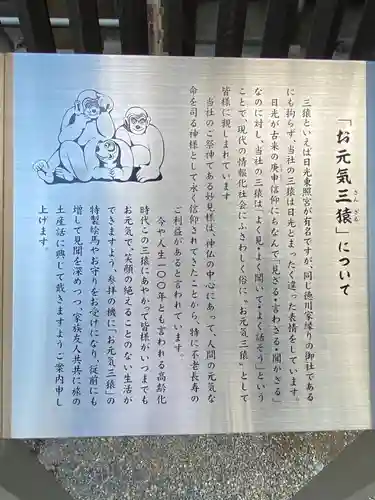 「お元気三猿」について
さんざる
三猿といえば日光東照宮が有名ですが、同じ徳川家縁りの御社である
にも拘らず、当社の三猿は日光とまったく違った表情をしています。
日光が古来の庚申信仰にちなんで「見ざる・言わざる・聞かざる」
なのに対し、当社の三猿は「よく見・よく聞いて・よく話そう」という
ことで、現代の情報化社会にふさわしく俗に〝お元気三猿〟として
皆様に親しまれています
当社のご祭神である妙見様は、神仏の中心にあって、人間の元気な
命を司る神様として永く信仰されてきたことから、特に不老長寿の
ご利益があると言われています。
今や人生一〇〇年とも言われる高齢化
時代この三猿にあやかって皆様がいつまでも
お元気で、笑顔の絶えることのない生活が
できますよう、参拝の機に「お元気三猿」の
特製絵馬やお守りをお受けになり、従前にも
増して見聞を深めつつ、家族友人共共に旅の
土産話に興じて戴きますようご案内申し
上げます。